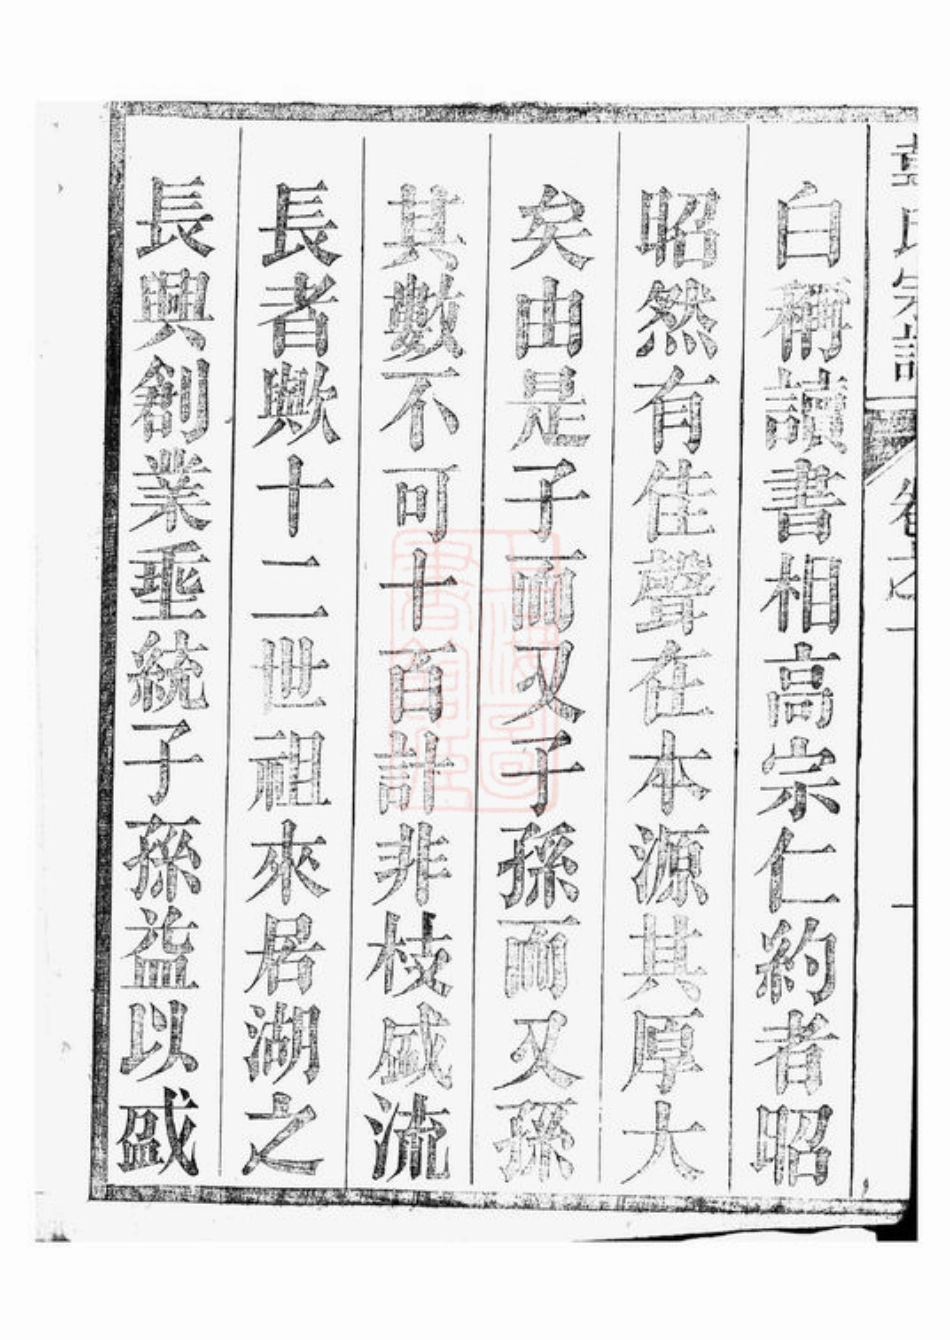 氏宗譜 卷之一 一
白稱讀書相高宗仁約者昭
昭然有佳聲在本源其厚大
矣由是子而又子孫而又孫
其數不可十百計非枝盛流
長者歟十二世祖來居湖之
長興創業垂統子孫益以盛